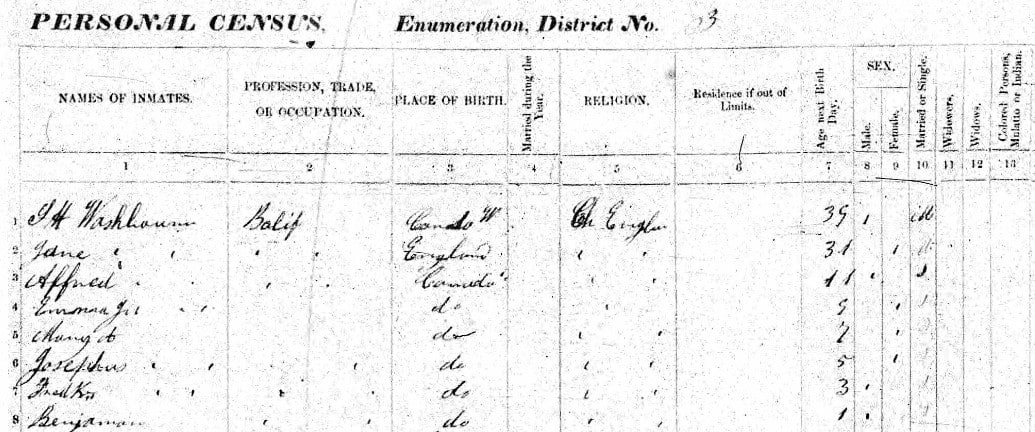 PERSONAL CENSUS, Enumeration, District No. 3
NAMES OF INMATES. PROFESSION, TRADE, OR OCCUPATION. PLACE OF BIRTH. Married during the Year. RELIGION. Residence if out of Limits. Age next Birth Day. SEX. Male. Female. Married or Single. Widowers. Widows. Colored Persons, Mulatto or Indian.
1 2 3 4 5 6 7 8 9 10 11 12 13
1 Washbourn Balif Canada W Ch Englan 39 M
2 Jane " " England 31
3 Alfred " Canada 11
4 Emma do 9
5 Mary A do 7
6 Josephus " " do 5
7 Fredk do 3
8 Benjaman do 1